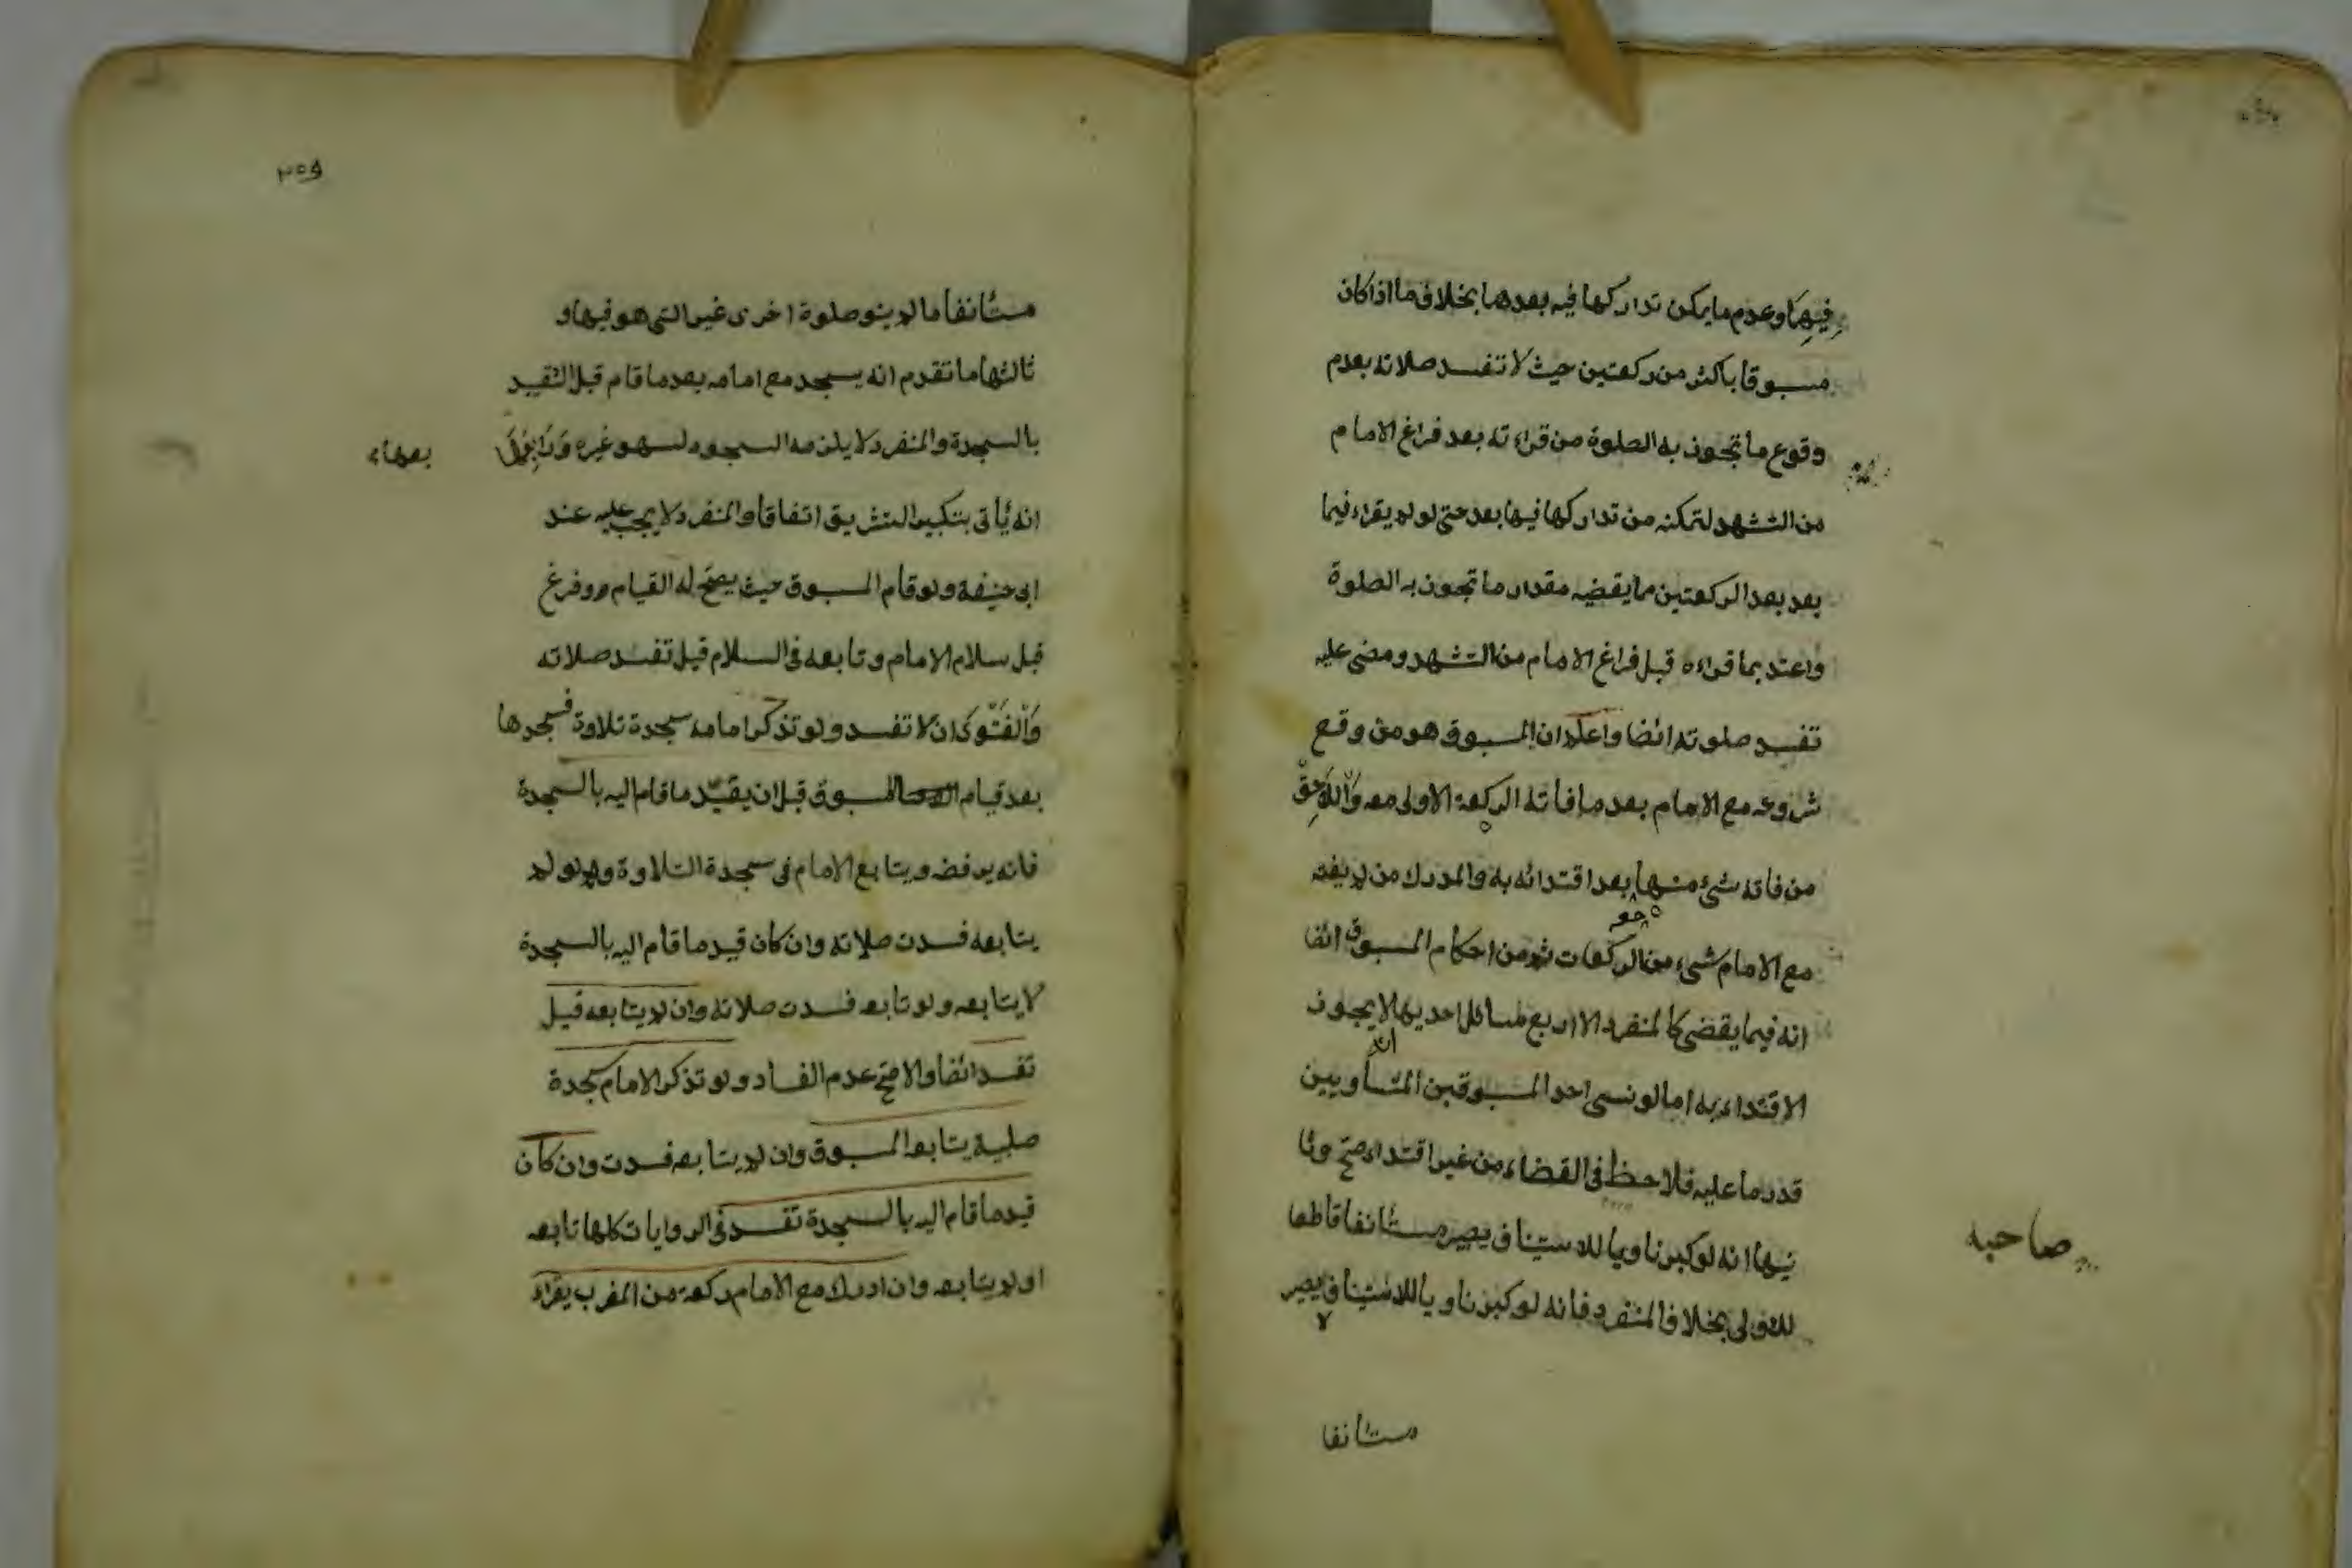 فيها وعدم ما يمكن تداركها فيه بعدها بخلاف ما اذا كان
مسبوقا باكثر من ركعتين حيث لا تفسد صلاته بعدم
وقوع ما تجوز به الصلوة من قراءته بعد فراغ الامام
من التشهد لتمكنه من تداركها فيها بعد حتى لو لم يقراء فيما
بعد بعد الركعتين مما يقضيه مقدار ما تجوز به الصلوة
واعتد بما قراءه قبل فراغ الامام من التشهد ومضى عليه
تفسد صلوته ايضا واعلم ان المسبوق هو من وقع
شروعه مع الامام بعد ما فاتة الركعة الاولى معه واللاحق
من فاته شئ منها بعد اقتدائه به والمدرك من لم يفته
مع الامام شىء من الركعات ثم من احكام المسبوق ايضا
انه فيما يقضى كالمنفرد الا اربع مسائل احديها لا يجوز
الاقتداء به اما لو نسى احد المسبوقين المتساويين
قدر ما عليه فلاحظ فى القضاء من غير اقتداء صح وثا
نيها انه لو كبر ناويا للاستيناف يصير مستانفا قاطعا
للاولى بخلاف المنفرد فانه لو كبر ناويا للاستيناف يصير
لا
صاحبه
مستانفا
٢٥٩
مستانفا ما لم ينو صلوة اخرى غير التى هو فيها و
ثالثها ما تقدم انه يسجد مع امامه بعد ما قام قبل التقييد
بالسجدة والمنفرد لا يلزمه السجود لسهو غيره ورابعها
انه يأتى بتكبير التشريق اتفاقا والمنفرد لا يجب عليه عند
ابى حنيفة ولو قام المسبوق حيث يصح له القيام وفرغ
قبل سلام الامام وتابعه فى السلام قيل تفسد صلاته
والفتوى ان لا تفسد ولو تذكر امامه سجدة تلاوة فسجدها
بعد قيام المسبوق قبل ان يقيد ما قام اليه بالسجدة
فانه يرفضه ويتابع الامام فى سجدة التلاوة ولو لم
يتابعه فسدت صلاته وان كان قيد ما قام اليه بالسجدة
لا يتابعه ولو تابعه فسدت صلاته وان لم يتابعه قيل
تفسد ايضا والاصح عدم الفساد ولو تذكر الامام سجدة
صلبية يتابعه المسبوق وان لم يتابعه فسدت وان كان
قيد ما قام اليه بالسجدة تفسد فى الروايات كلها تابعه
او لم يتابعه وان ادرك مع الامام ركعة من المغرب يقراء